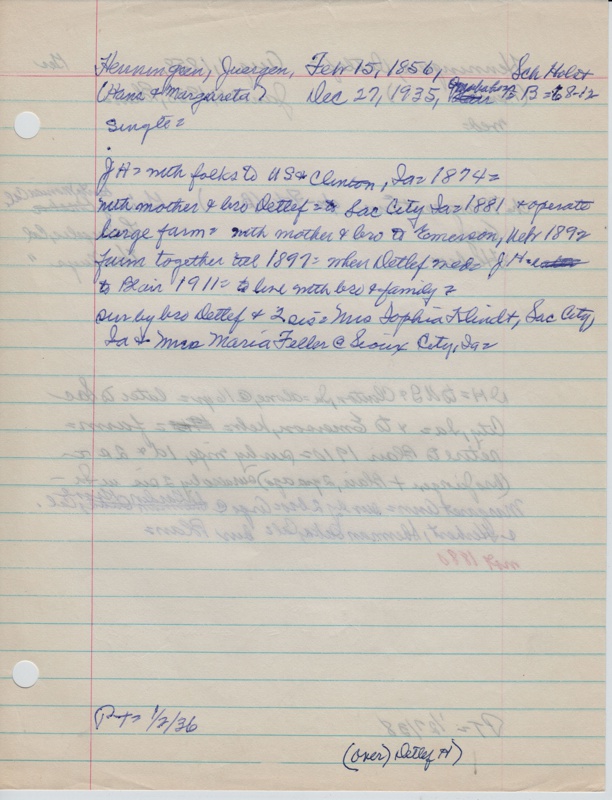 Henningsen, Juergen, Feb 15, 1856, Sch Holst
(Hans & Margareta) Dec 27, 1935, Omaha hosp B = 68-12
Single =
J H = with folks to US & Clinton, Ia = 1874 =
with mother & bro Detlef = to Sac City Ia = 1881 & operate
large farm = with mother & bro to Emerson, Nebr 1892
farm together till 1897 = when Detlef md = J H =
to Blair 1911 = to live with bro & family =
sur by bro Detlef & 2 sis = Mrs Sophia Klindt, Sac City,
Ia & Mrs Maria Feller @ Sioux City, Ia =
PT = 1/2/36
(over) Detlef H)